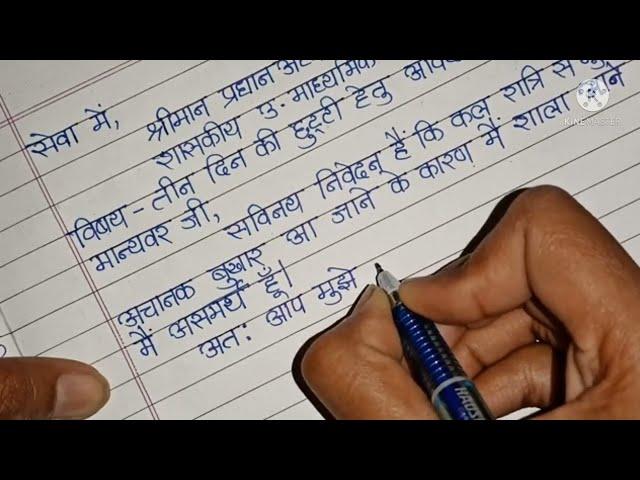 सेवा में,
श्रीमान प्रधान
शासकीय पु. माध्यमिक
विषय - तीन दिन की छुट्टी हेतु
मान्यवर जी,
सविनय निवेदन हैं कि कल रात्रि से
अचानक बुखार आ जाने के कारण में शाला
में असमर्थ हूँ।
अतः आप मुझे
KINEMASTER